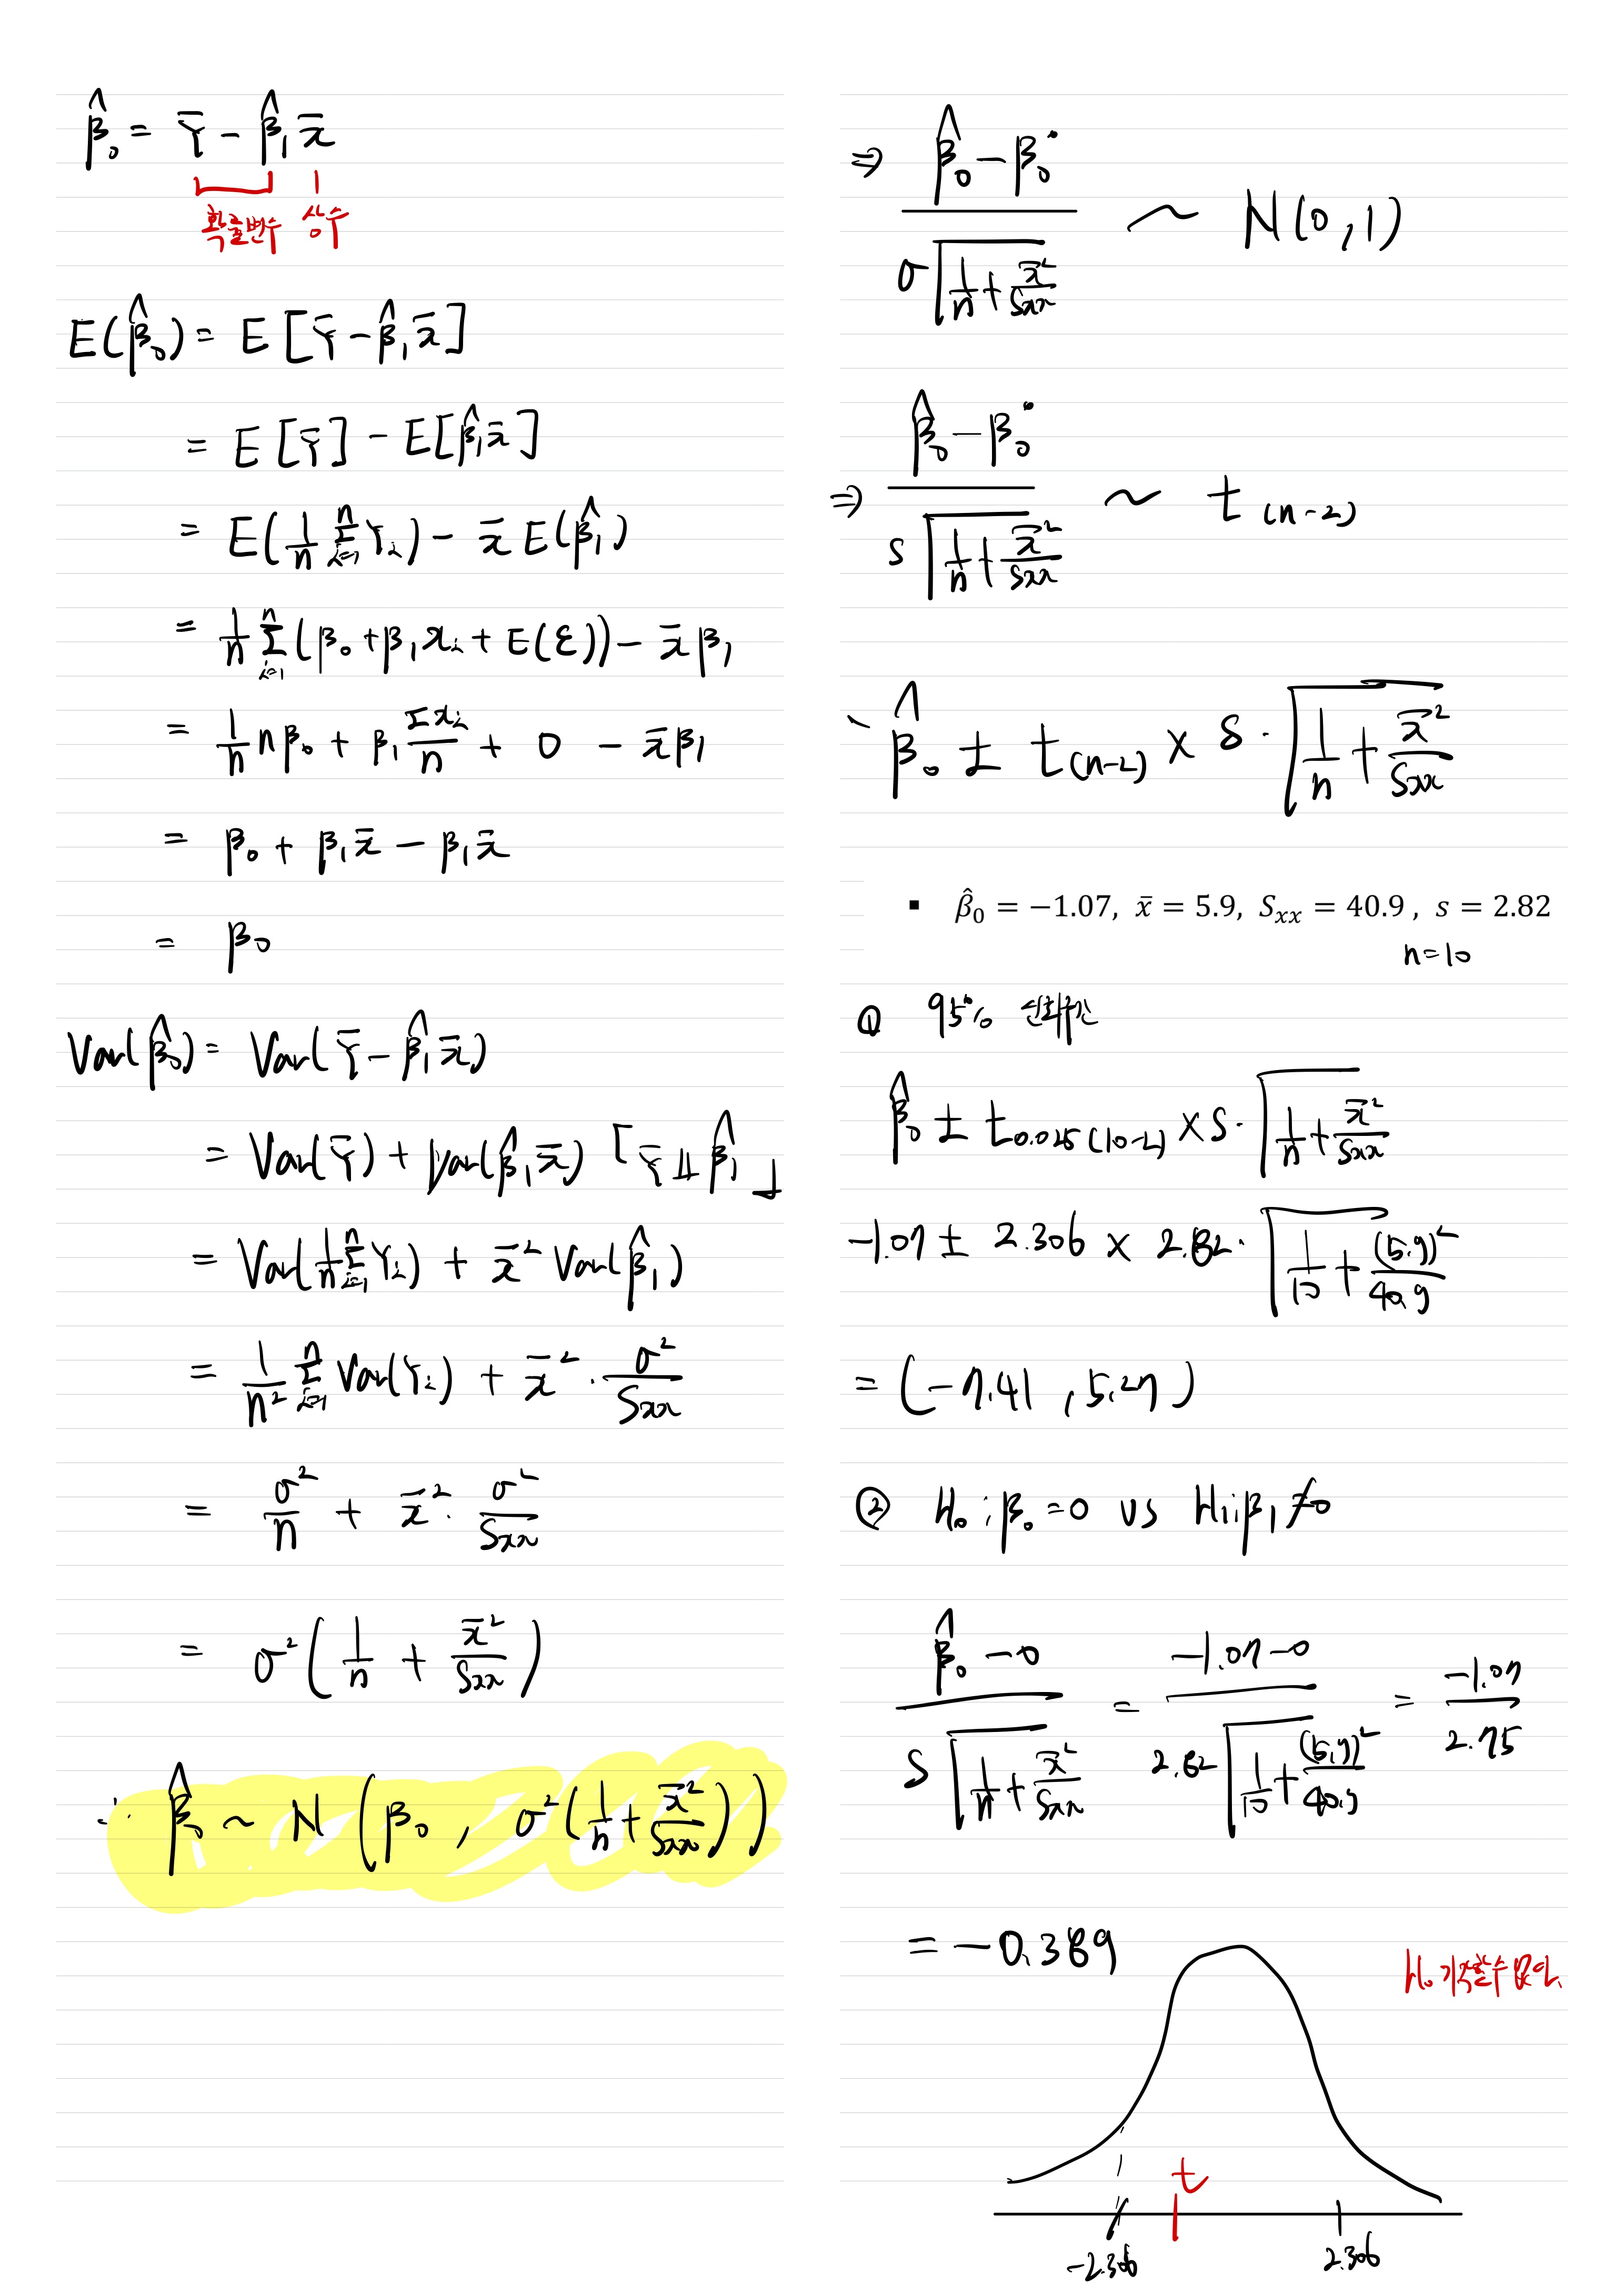 β̂₀ = Ȳ - β̂₁x̄
확률변수 상수
E(β̂₀) = E[Ȳ - β̂₁x̄]
= E[Ȳ] - E[β̂₁x̄]
= E(1/n Σᵢ₌₁ⁿ Yᵢ) - x̄ E(β̂₁)
= 1/n Σᵢ₌₁ⁿ (β₀ + β₁xᵢ + E(ε)) - x̄β₁
= 1/n nβ₀ + β₁ Σxᵢ/n + 0 - x̄β₁
= β₀ + β₁x̄ - β₁x̄
= β₀
Var(β̂₀) = Var(Ȳ - β̂₁x̄)
= Var(Ȳ) + Var(β̂₁x̄) [Ȳ ⫫ β̂₁]
= Var(1/n Σᵢ₌₁ⁿ Yᵢ) + x̄² Var(β̂₁)
= 1/n² Σᵢ₌₁ⁿ Var(Yᵢ) + x̄² · σ²/Sxx
= σ²/n + x̄² · σ²/Sxx
= σ² (1/n + x̄²/Sxx)
∴ β̂₀ ~ N (β₀ , σ²(1/n + x̄²/Sxx))
⇒ (β̂₀ - β₀°) / (σ√(1/n + x̄²/Sxx)) ~ N(0,1)
⇒ (β̂₀ - β₀°) / (s√(1/n + x̄²/Sxx)) ~ t(n-2)
β̂₀ ± t(n-2) × s · √(1/n + x̄²/Sxx)
▪ β̂₀ = −1.07, x̄ = 5.9, Sxx = 40.9 , s = 2.82
n=10
① 95% 신뢰구간
β̂₀ ± t₀.₀₂₅(10-2) × s · √(1/n + x̄²/Sxx)
-1.07 ± 2.306 × 2.82 · √(1/10 + (5.9)²/40.9)
= (-7.41 , 5.27)
② H₀ : β₀ = 0 vs H₁ : β₁ ≠ 0
(β̂₀ - 0) / (s√(1/n + x̄²/Sxx)) = (-1.07 - 0) / (2.82√(1/10 + (5.9)²/40.9)) = -1.07/2.75
= -0.389
H₀ 기각할수 없다.
t
-2.306 2.306